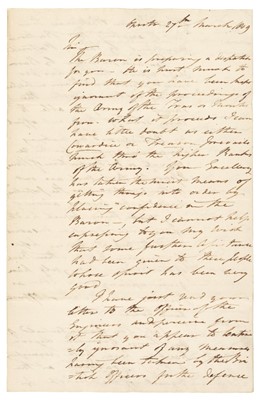 Porto 27th March, 1809
Sir
The Baron is preparing a
for you — He is hurt much to
find that you have been kept
ignorant of the proceedings of
the Army of the Tras os Montes
from what it proceeds I can
have little doubt as either
Cowardice or Treason
the higher Ranks
of the Army. Your Excellency
has taken the surest means of
getting things into order by
placing confidence in the
Baron — but I cannot help
expressing to you my wish
that some further
had been given to these people
whose spirit has been very
good
I have just read your
letter to the Officer of the
Engineers and perceive from
it that you appear to be
ignorant of any measures
having been taken by the Bri
tish Officers for the defence